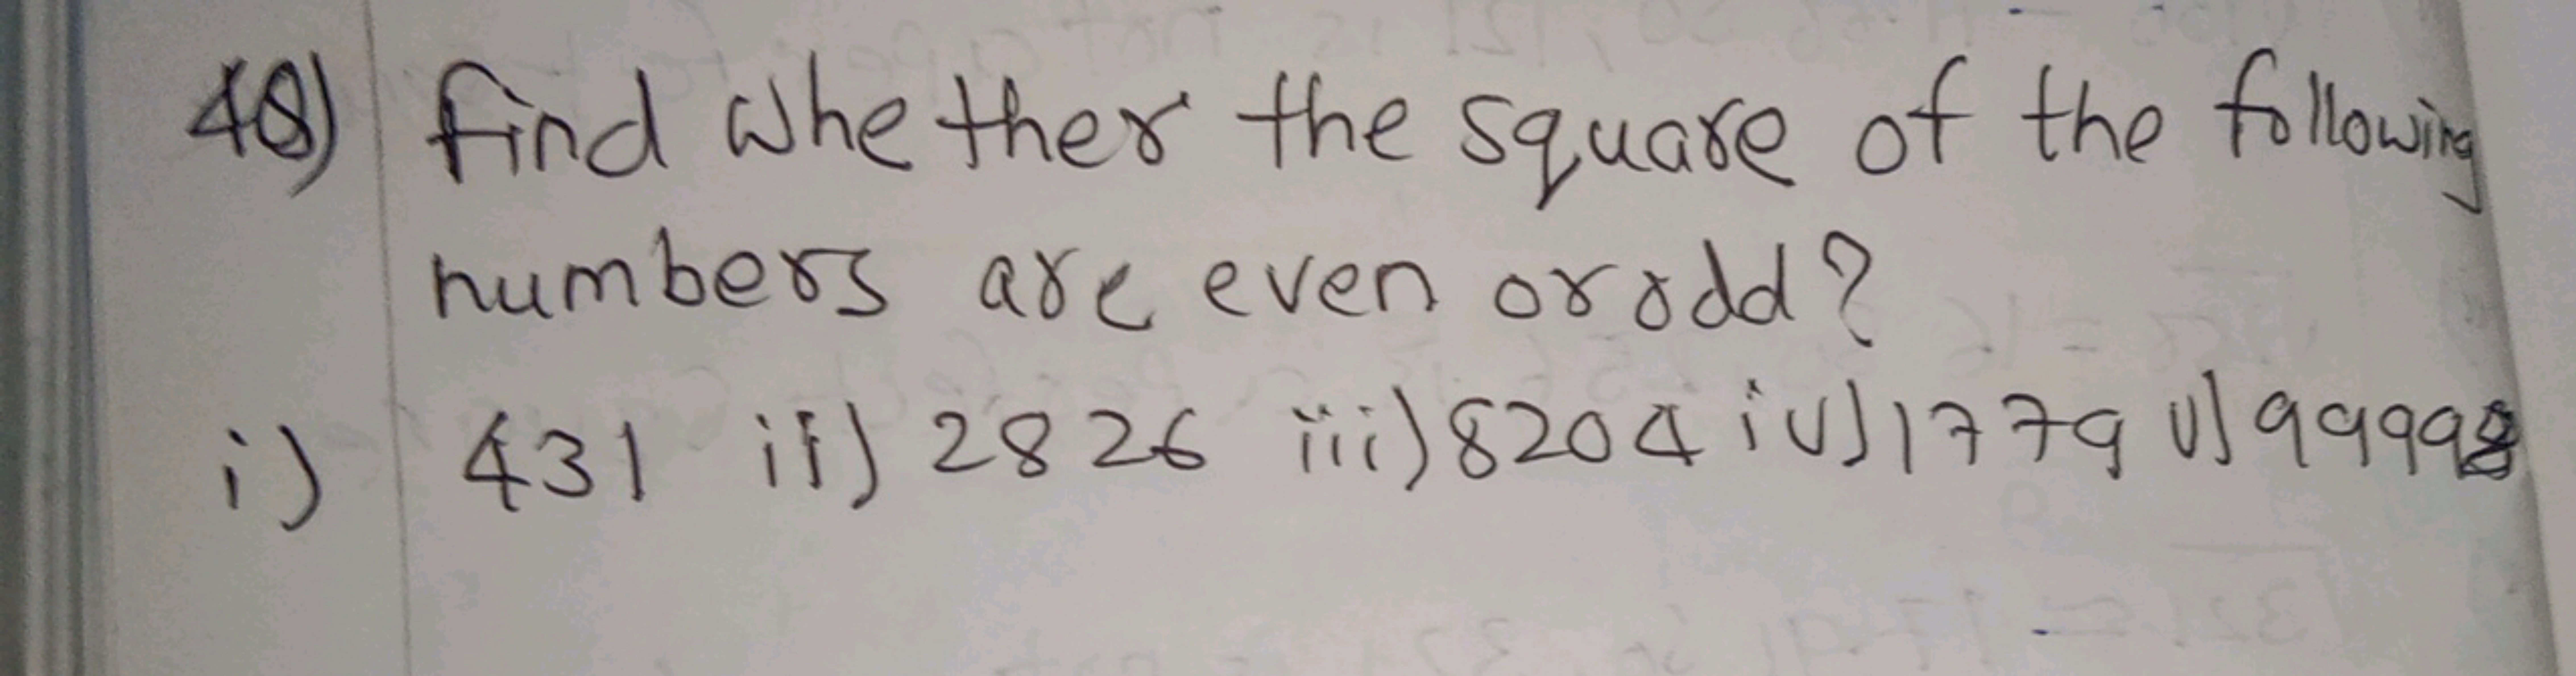 48) find whether the square of the following
numbers are even or odd?
i) 431 ii) 2826 iii) 8204 iv) 1779 v) 99998